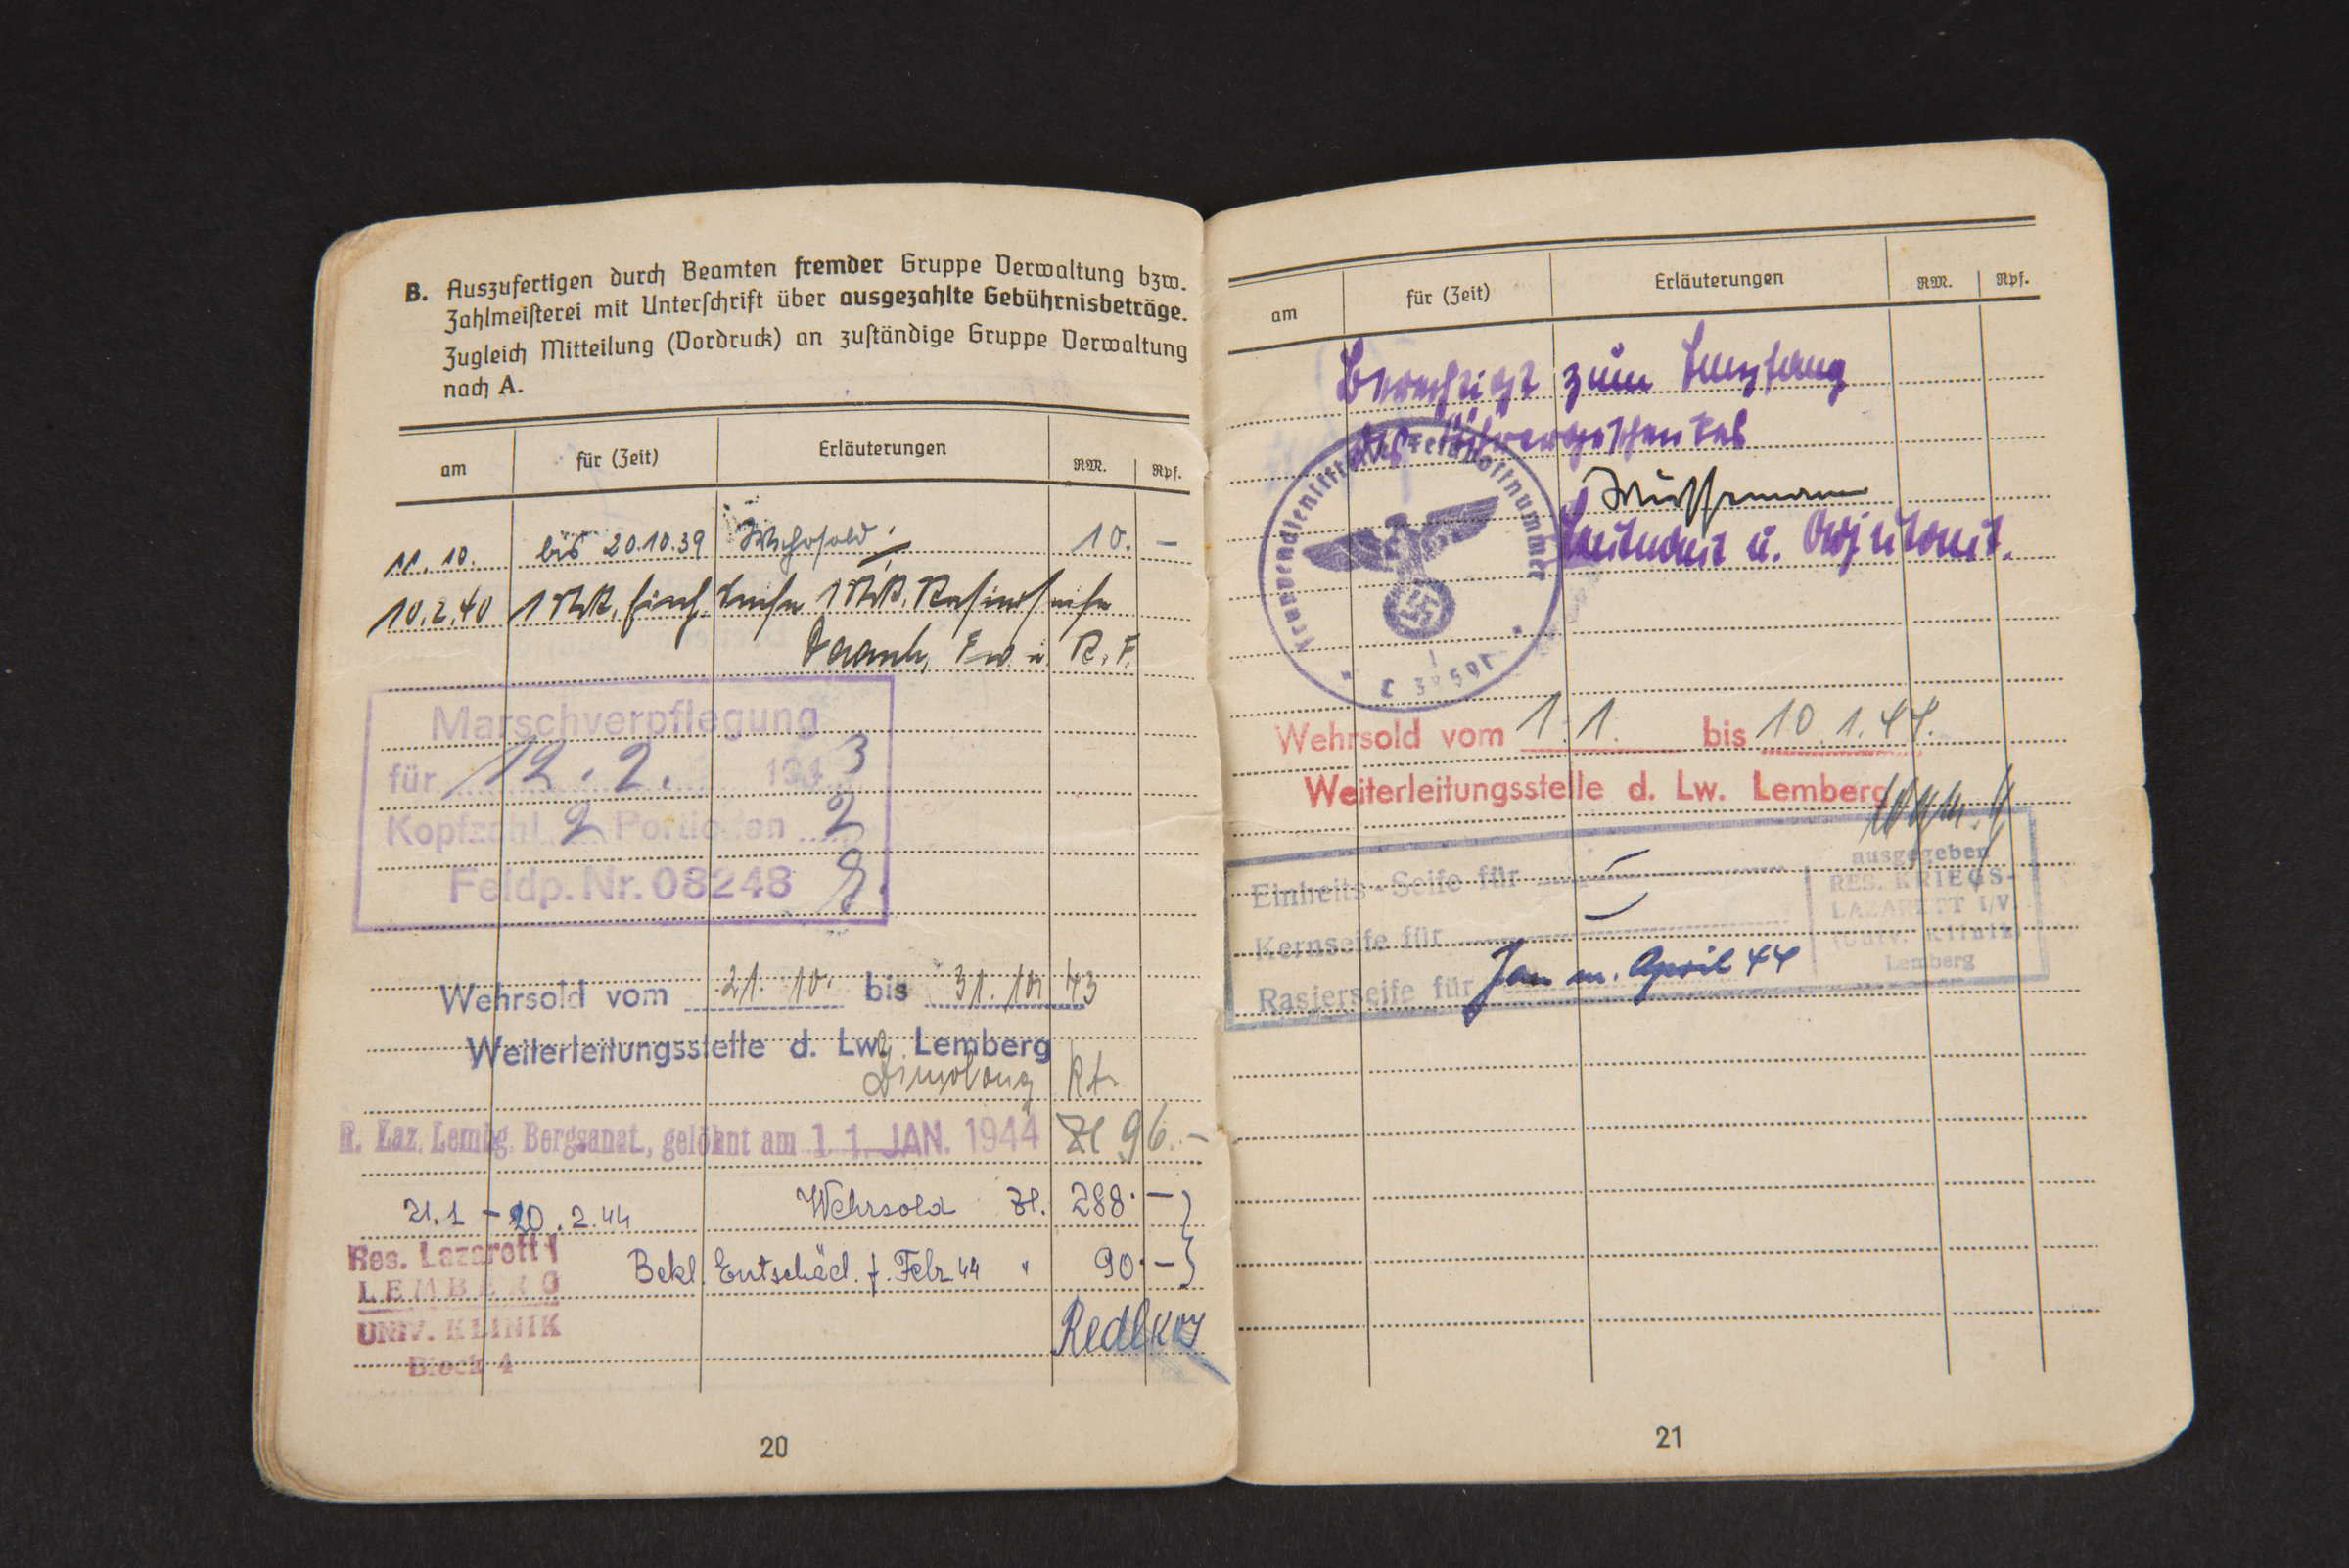 B. Auszufertigen durch Beamten fremder Gruppe Verwaltung bzw.
Zahlmeisterei mit Unterschrift über ausgezahlte Gebührnisbeträge.
Zugleich Mitteilung (Vordruck) an zuständige Gruppe Verwaltung
nach A.
am für (Zeit) Erläuterungen RM. Rpf.
11.10. bis 20.10.39 Wehrsold 10. —
10.2.40 1 Stck. Seife 1 Stck. Rasierseife
Marschverpflegung
für 12.2. 1943
Kopfzahl 2 Portionen 2
Feldp. Nr. 08248
Wehrsold vom 21.10. bis 31.10.43
Weiterleitungsstelle d. Lw. Lemberg
R. Laz. Lembg. Bergsanat., gelöhnt am 11. JAN. 1944 Zl 96.—
21.1 - 20.2.44 Wehrsold Zl. 288.—
Res. Lazarett I
Bekl. Entschäd. f. Febr 44 " 90.—
LEMBERG
UNIV. KLINIK
Block 4
20
am für (Zeit) Erläuterungen RM. Rpf.
Berechtigt zum Empfang
des Führergeschenkes
Leutnant u. Adjutant.
Feldpostnummer
Wehrsold vom 1.1. bis 10.1.44.
Weiterleitungsstelle d. Lw. Lemberg
Einheits-Seife für —
Kernseife für —
Rasierseife für Jan m. April 44
ausgegeben
RES. KRIEGS-
LAZARETT I/V
(Univ. Klinik)
Lemberg
21